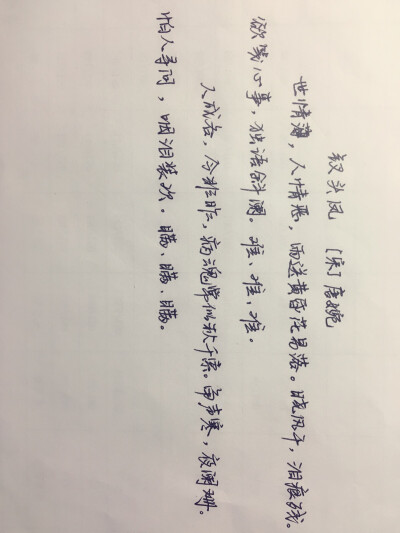 钗头凤 [宋]唐婉
世情薄，人情恶，雨送黄昏花易落。晓风干，泪痕残。
欲笺心事，独语斜阑。难、难、难。
人成各，今非昨，病魂常似秋千索。角声寒，夜阑珊。
怕人寻问，咽泪装欢。瞒、瞒、瞒。